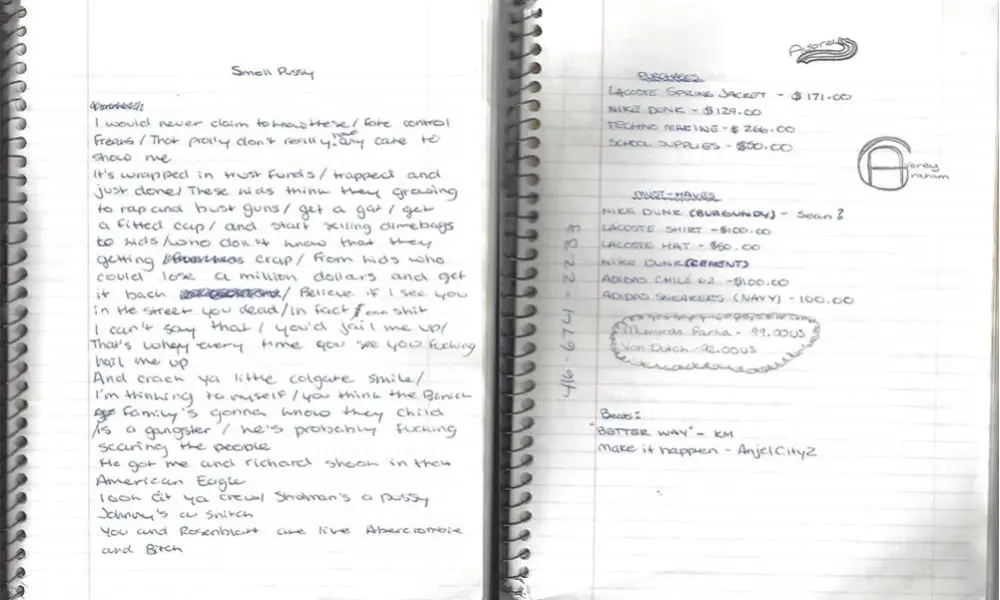 Small Pussy
I would never claim to know these / fate control
Freaks / That prolly don't really have any care to
show me
It's wrapped in trust funds / trapped and
just done / These kids think they growing
to rap and bust guns / get a gat / get
a fitted cap / and start selling dimebags
to kids / who don't know that they
getting crap / From kids who
could lose a million dollars and get
it back / Believe if I see you
in the street you dead / in fact
I can't say that / you'd jail me up /
That's every time you see you fucking
hail me up
And crack ya little colgate smile /
I'm thinking to myself / you think the
family's gonna know they child
is a gangster / he's probably fucking
scaring the people
He got me and richard shook in their
American Eagle
look at ya crew / Shulman's a pussy
Johnny's a snitch
You and Rosenblatt are like Abercrombie
and Bitch
Aubrey
PURCHASES
LACOSTE SPRING JACKET - $171.00
NIKE DUNK - $129.00
TECHNO MARINE - $266.00
SCHOOL SUPPLIES - $50.00
Aubrey
Graham
MUST-HAVES
NIKE DUNK (BURGUNDY) - Sean?
LACOSTE SHIRT - $100.00
LACOSTE HAT - $50.00
NIKE DUNK (CEMENT)
ADIDAS CHILE 62 - $100.00
ADIDAS SNEAKERS (NAVY) - 100.00
Parka - 99.00US
Von Dutch - 92.00US
Beats:
"BETTER WAY" - KM
make it happen - AnjelCity2